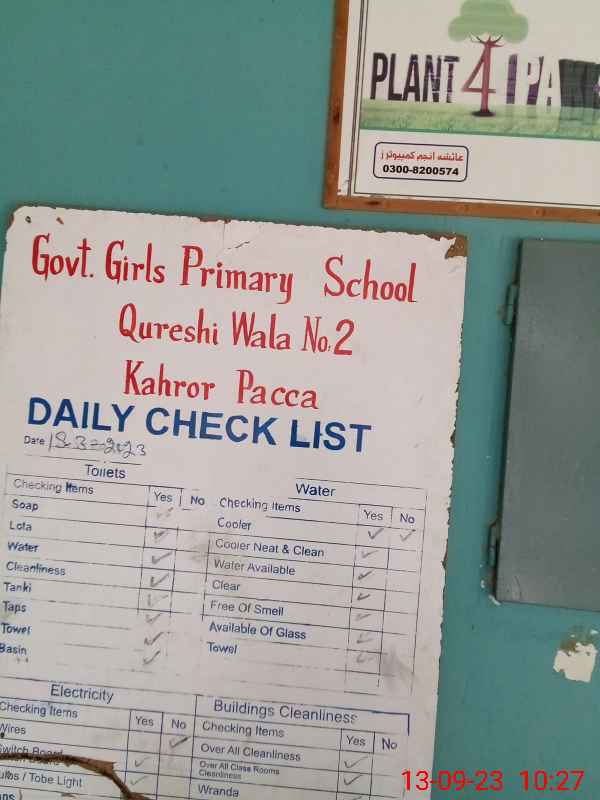 PLANT 4
عائشہ انجم کمپیوٹرز
0300-8200574
Govt. Girls Primary School
Qureshi Wala No.2
Kahror Pacca
DAILY CHECK LIST
Date
Toilets
Checking Items Yes No
Soap
Lota
Water
Cleanliness
Tanki
Taps
Towel
Basin
Water
Checking Items Yes No
Cooler
Cooler Neat & Clean
Water Available
Clear
Free Of Smell
Available Of Glass
Towel
Electricity
Checking Items Yes No
Wires
Switch Board
Tobe Light
Buildings Cleanliness
Checking Items Yes No
Over All Cleanliness
Over All Class Rooms
Cleanliness
Wranda
13-09-23 10:27